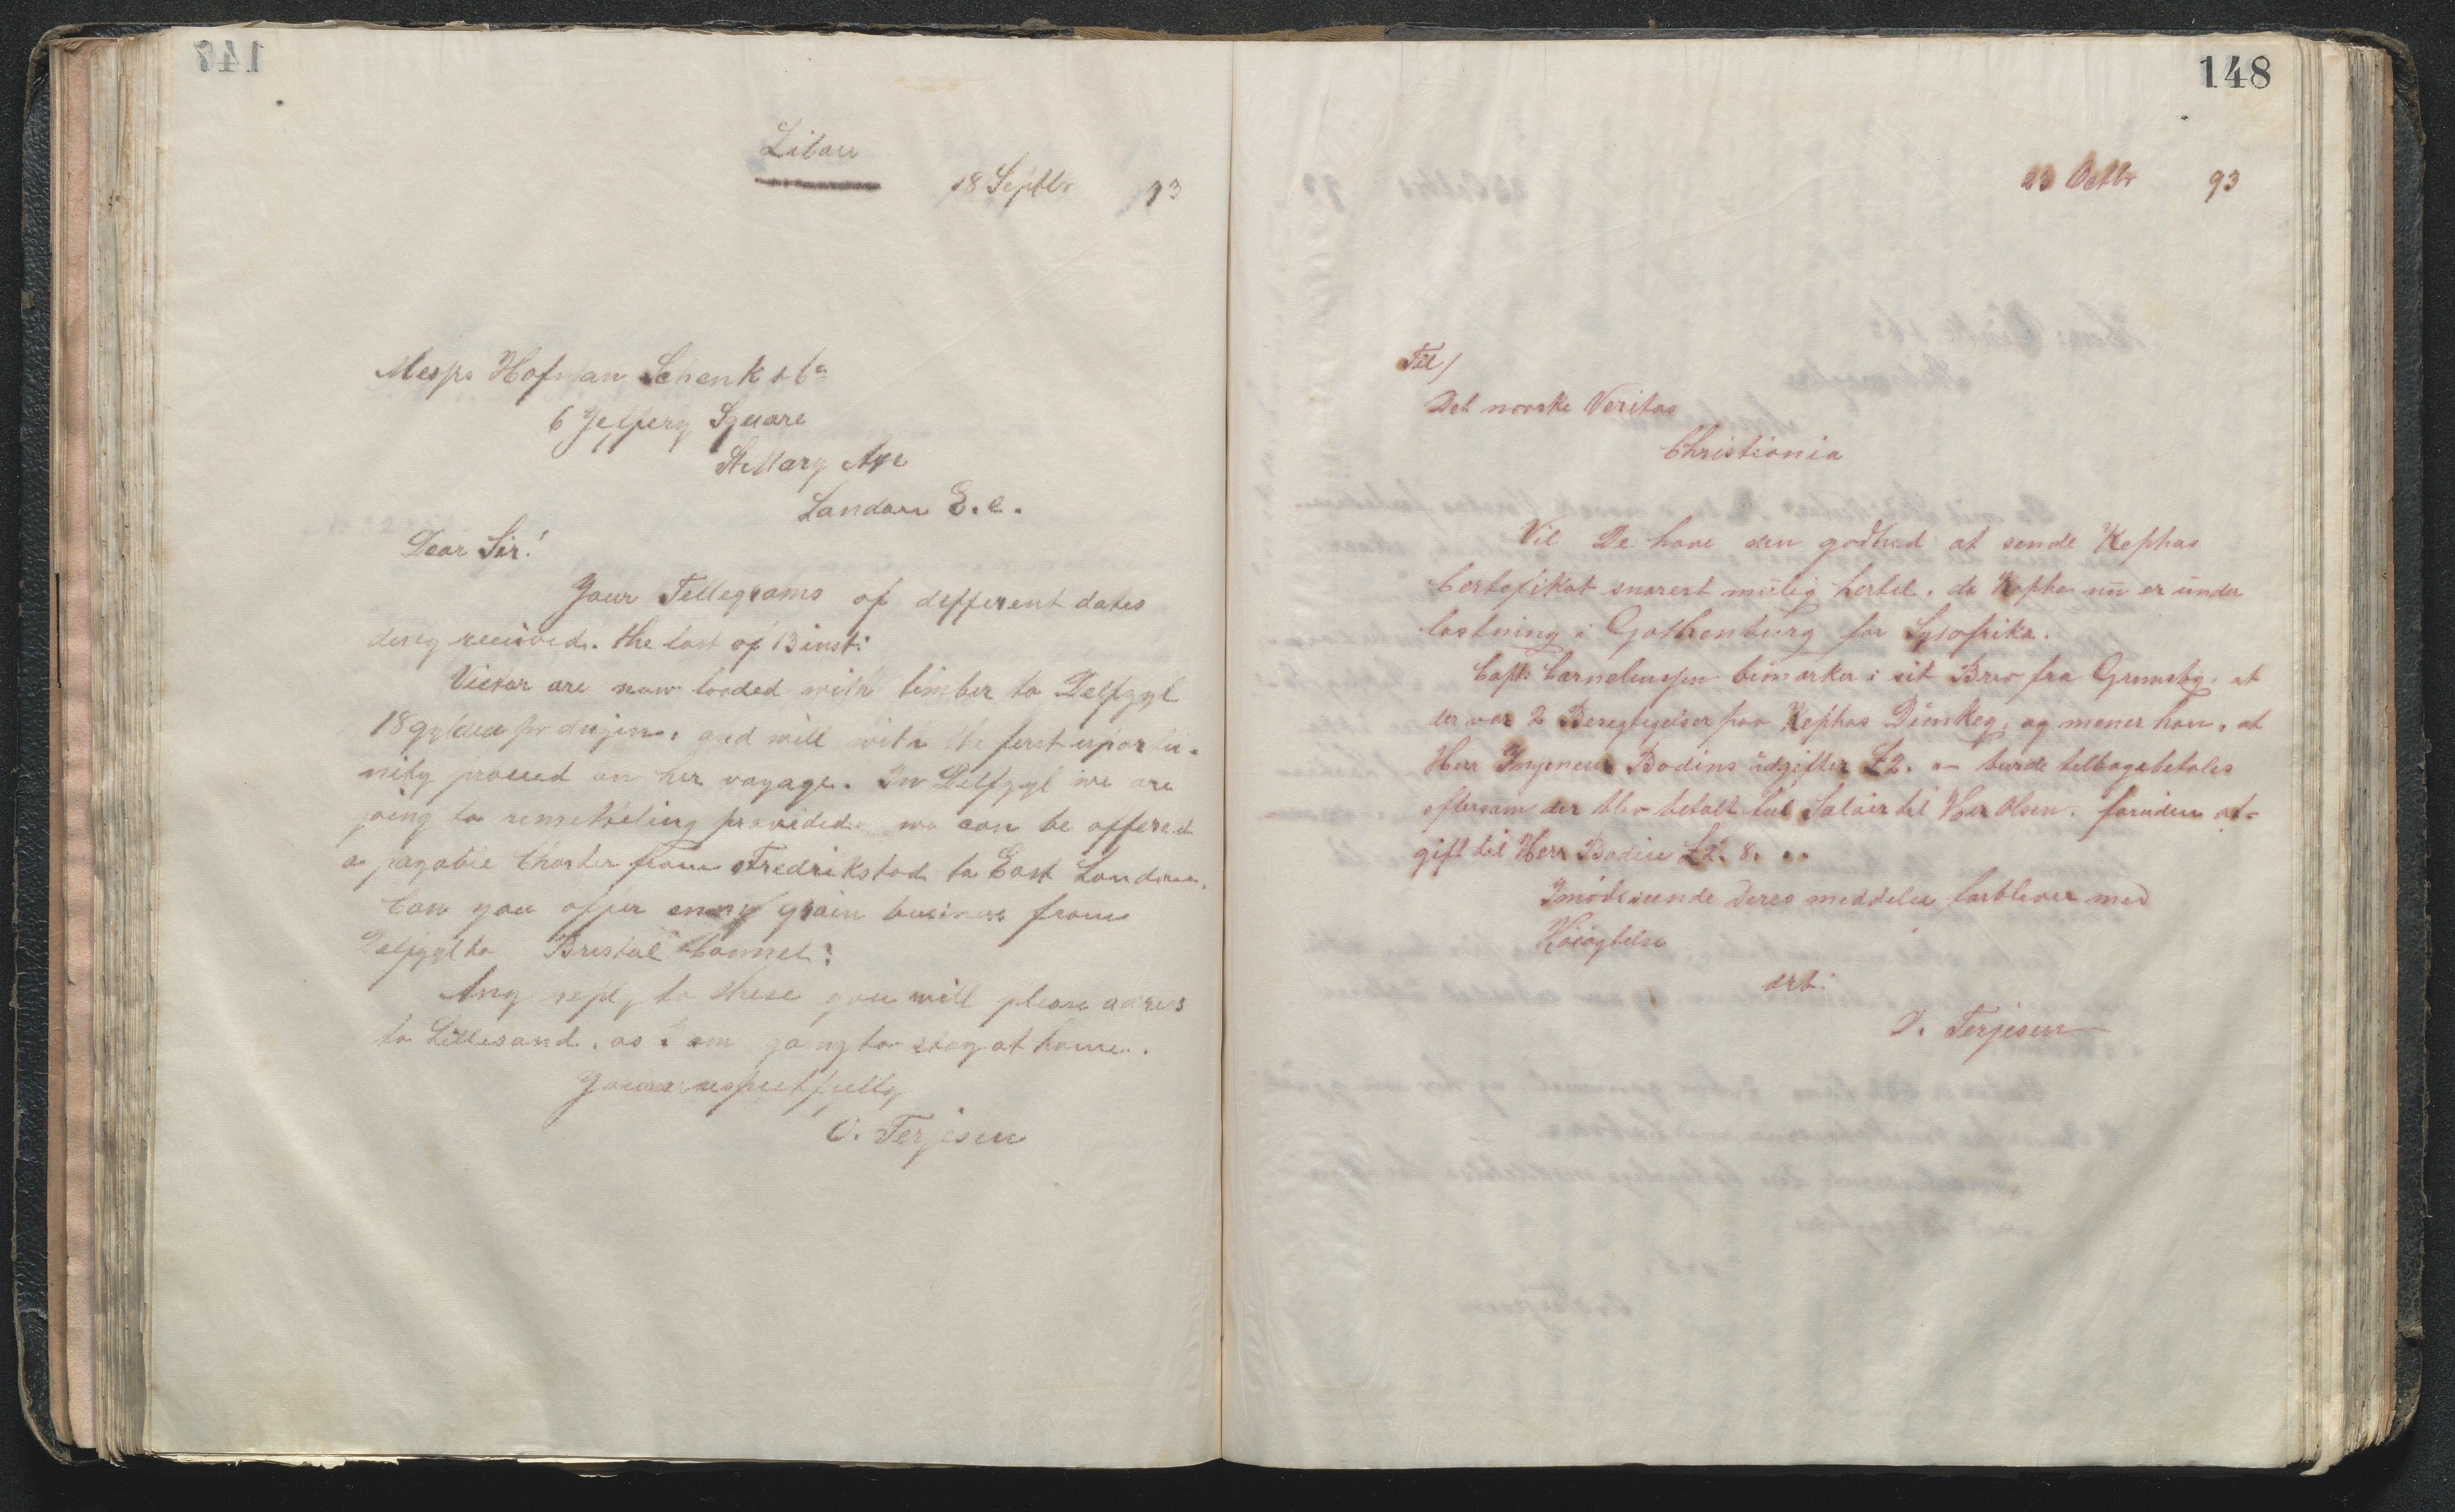 147
Libau
18 Septbr 93
Messrs Hofman Schenk & Co
6 Jeffery Square
St Mary Axe
London E. C.
Dear Sir!
Your Tellegrams of different dates
duly received. the last of 13 inst:
Victor are now loaded with timber to Delfzyl
18 gylden pr and will with the first uportu-
nity proceed on her voyage. In Delfzyl we are
going to provided we can be offered
a payable Charter from Fredrikstad to East London.
Can you offer enny grain business from
Delfzyl to Bristol Cannel?
Any reply to these you will please adress
to Lillesand, as I am going to stay at home.
Yours respectfully
O. Terjesen
148
23 Octbr 93
Til/
Det norske Veritas
Christiania
Vil De have den godhed at sende Kephas
Certefikat snarest mulig hertil. da Kephas nu er under
lastning i Gothenburg for Sydafrika.
Capt: Corneliussen bemærker i sit Brev fra Grimsby, at
der var 2 Besigtigelser paa Kephas Dunkeg, og mener han, at
Herr Ingeneur Bodins udgifter £2. " – burde tilbagebetales
eftersom der blev betalt ful Salair til Her Olsen. foruden at-
gift til Herr Bodin £2. 8. " "
Imødeseende Deres meddelse forbliver med
Høiagtelse
erb:
O. Terjesen